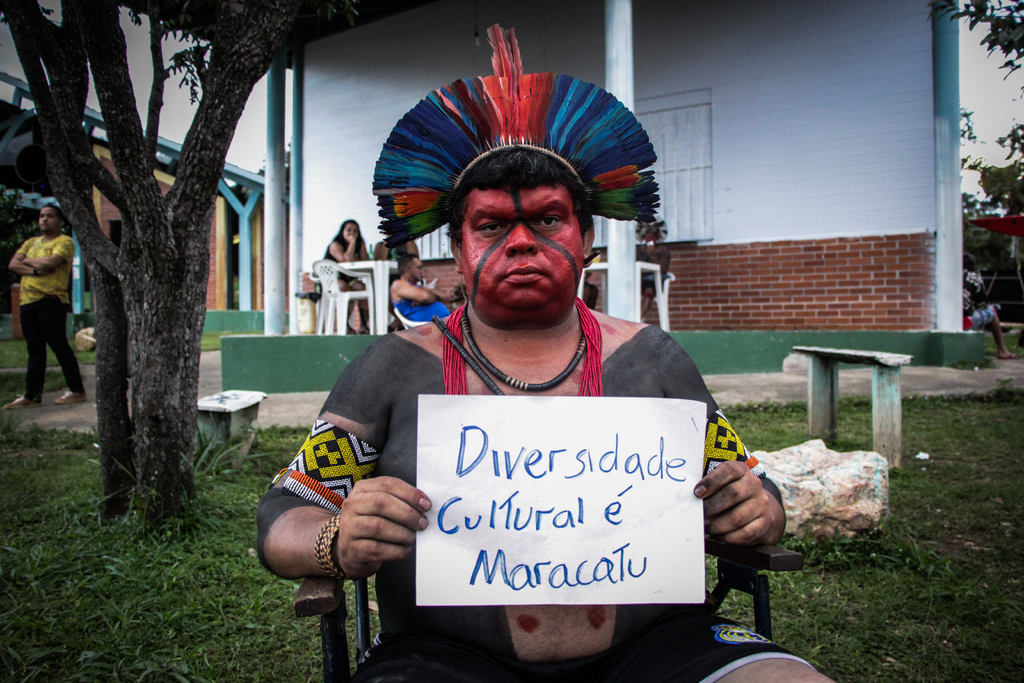 Diversidade
Cultural é
Maracatu